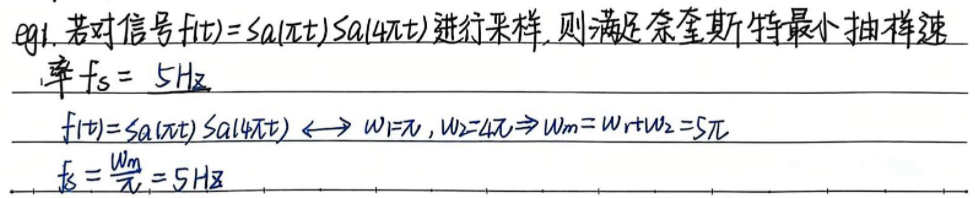 eg1. 若对信号f(t)=Sa(πt)Sa(4πt)进行采样,则满足奈奎斯特最小抽样速
率 fs = 5Hz
f(t)=Sa(πt) Sa(4πt) ⟷ W1=π, W2=4π⇒Wm=W1+W2=5π
fs = Wm/π = 5Hz